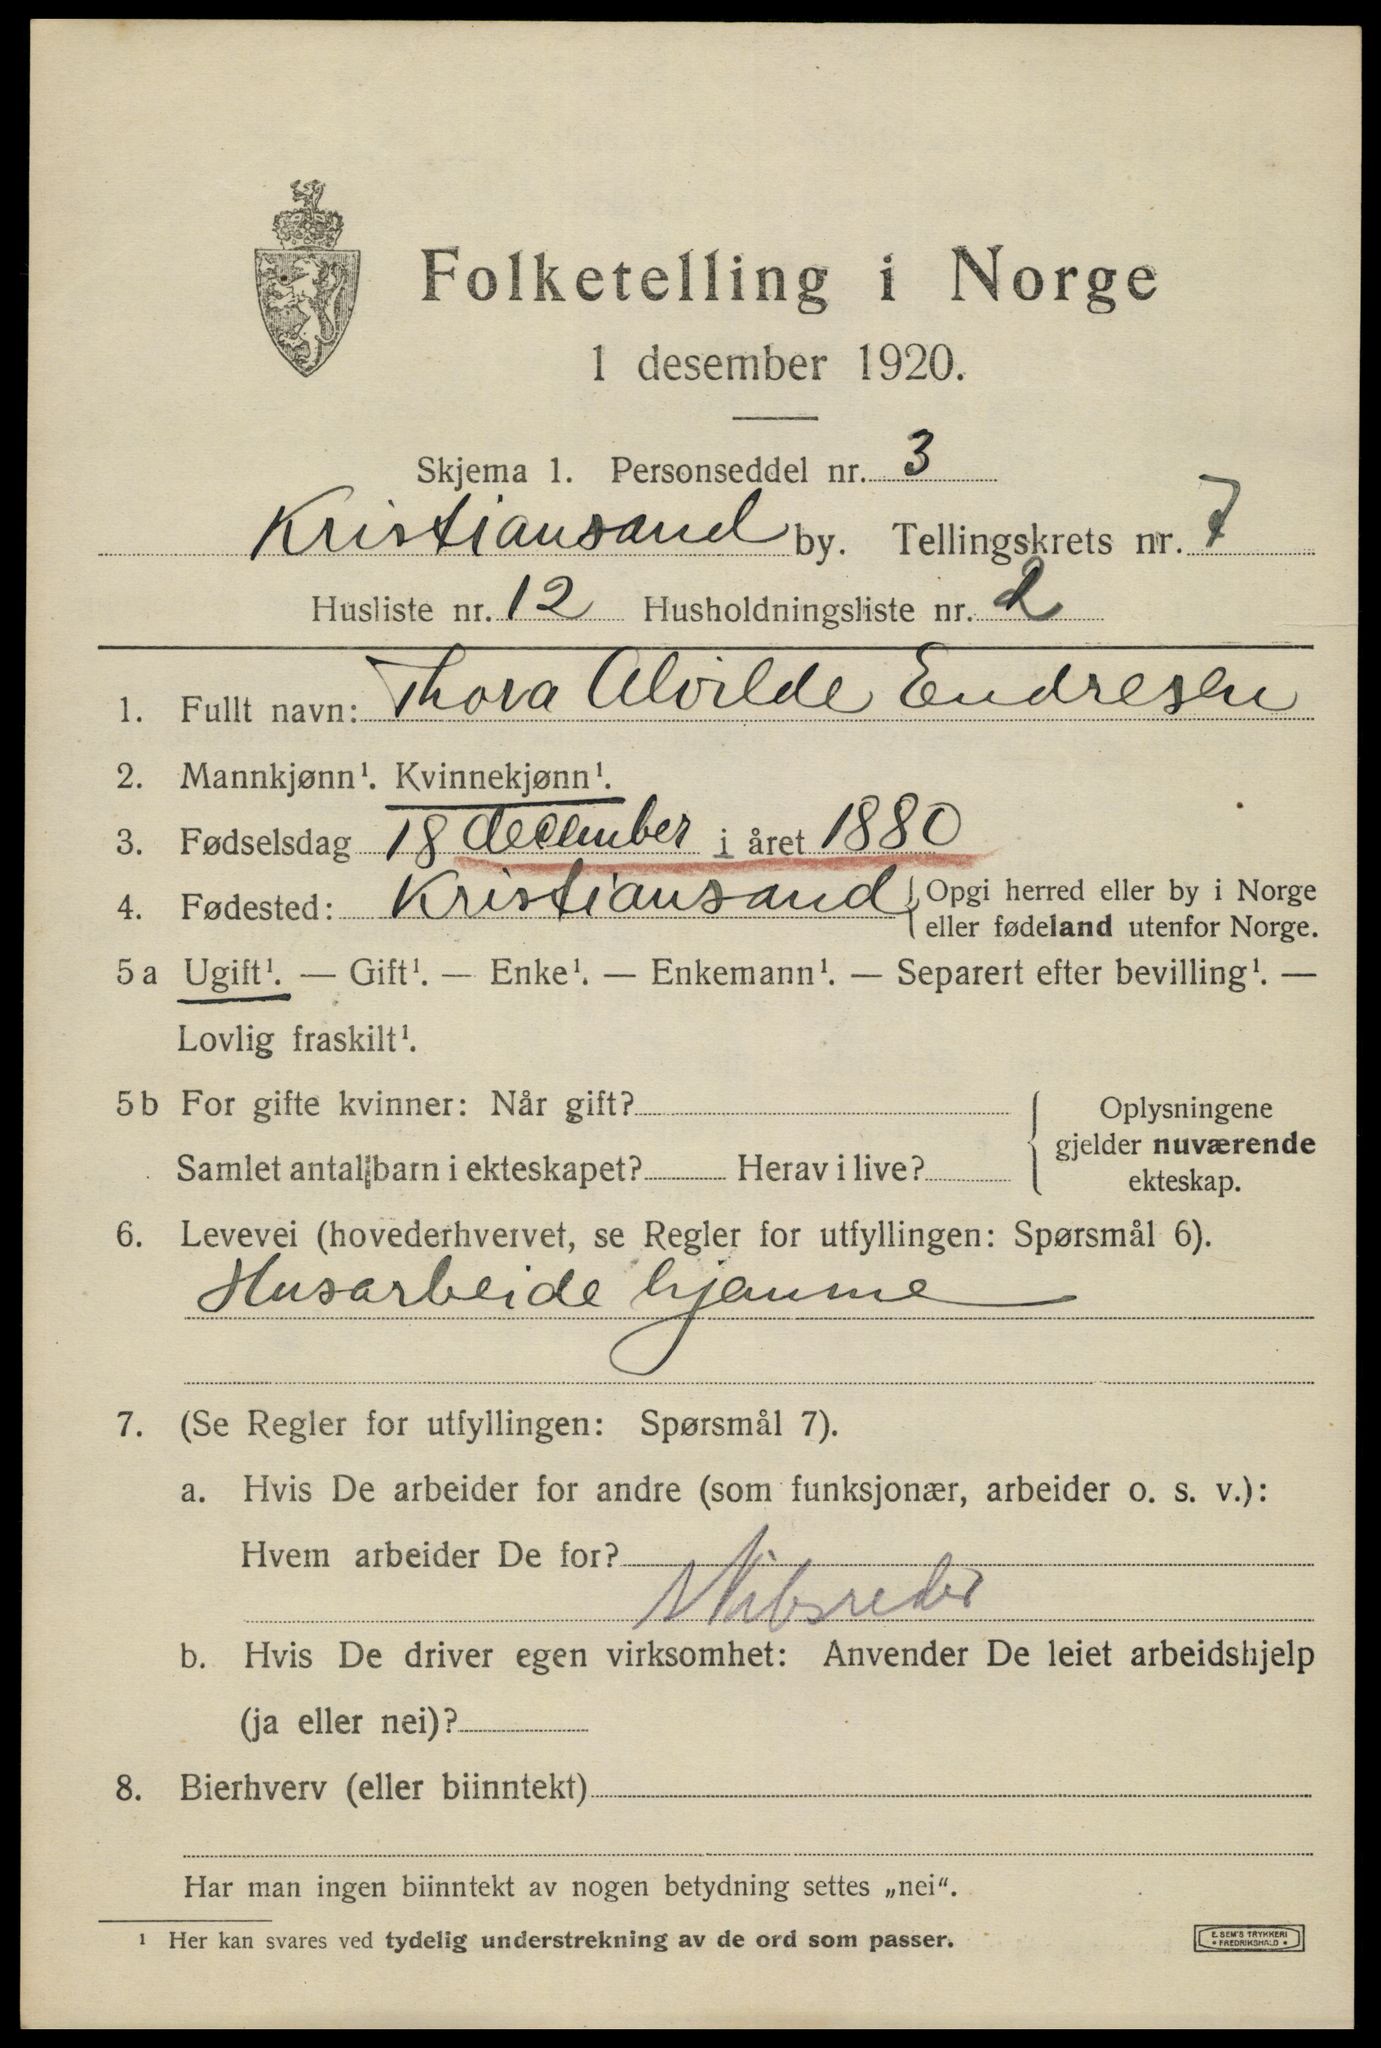 Folketelling i Norge
1 desember 1920.
Skjema 1. Personseddel nr. 3
Kristiansand by. Tellingskrets nr. 7
Husliste nr. 12 Husholdningsliste nr. 2
1. Fullt navn: Thora Alvilde Endresen
2. Mannkjønn¹. Kvinnekjønn¹.
3. Fødselsdag 18 december i året 1880
4. Fødested: Kristiansand { Opgi herred eller by i Norge
eller fødeland utenfor Norge.
5a Ugift¹. — Gift¹. — Enke¹. — Enkemann¹. — Separert efter bevilling¹. —
Lovlig fraskilt¹.
5b For gifte kvinner: Når gift?
Samlet antal barn i ekteskapet? Herav i live?
Oplysningene
gjelder nuværende
ekteskap.
6. Levevei (hovederhvervet, se Regler for utfyllingen: Spørsmål 6).
Husarbeide hjemme
7. (Se Regler for utfyllingen: Spørsmål 7).
a. Hvis De arbeider for andre (som funksjonær, arbeider o. s. v.):
Hvem arbeider De for?
Skibsreder
b. Hvis De driver egen virksomhet: Anvender De leiet arbeidshjelp
(ja eller nei)?
8. Bierhverv (eller biinntekt)
Har man ingen biinntekt av nogen betydning settes „nei“.
¹ Her kan svares ved tydelig understrekning av de ord som passer.
E. SEM'S TRYKKERI
• FREDRIKSHALD •